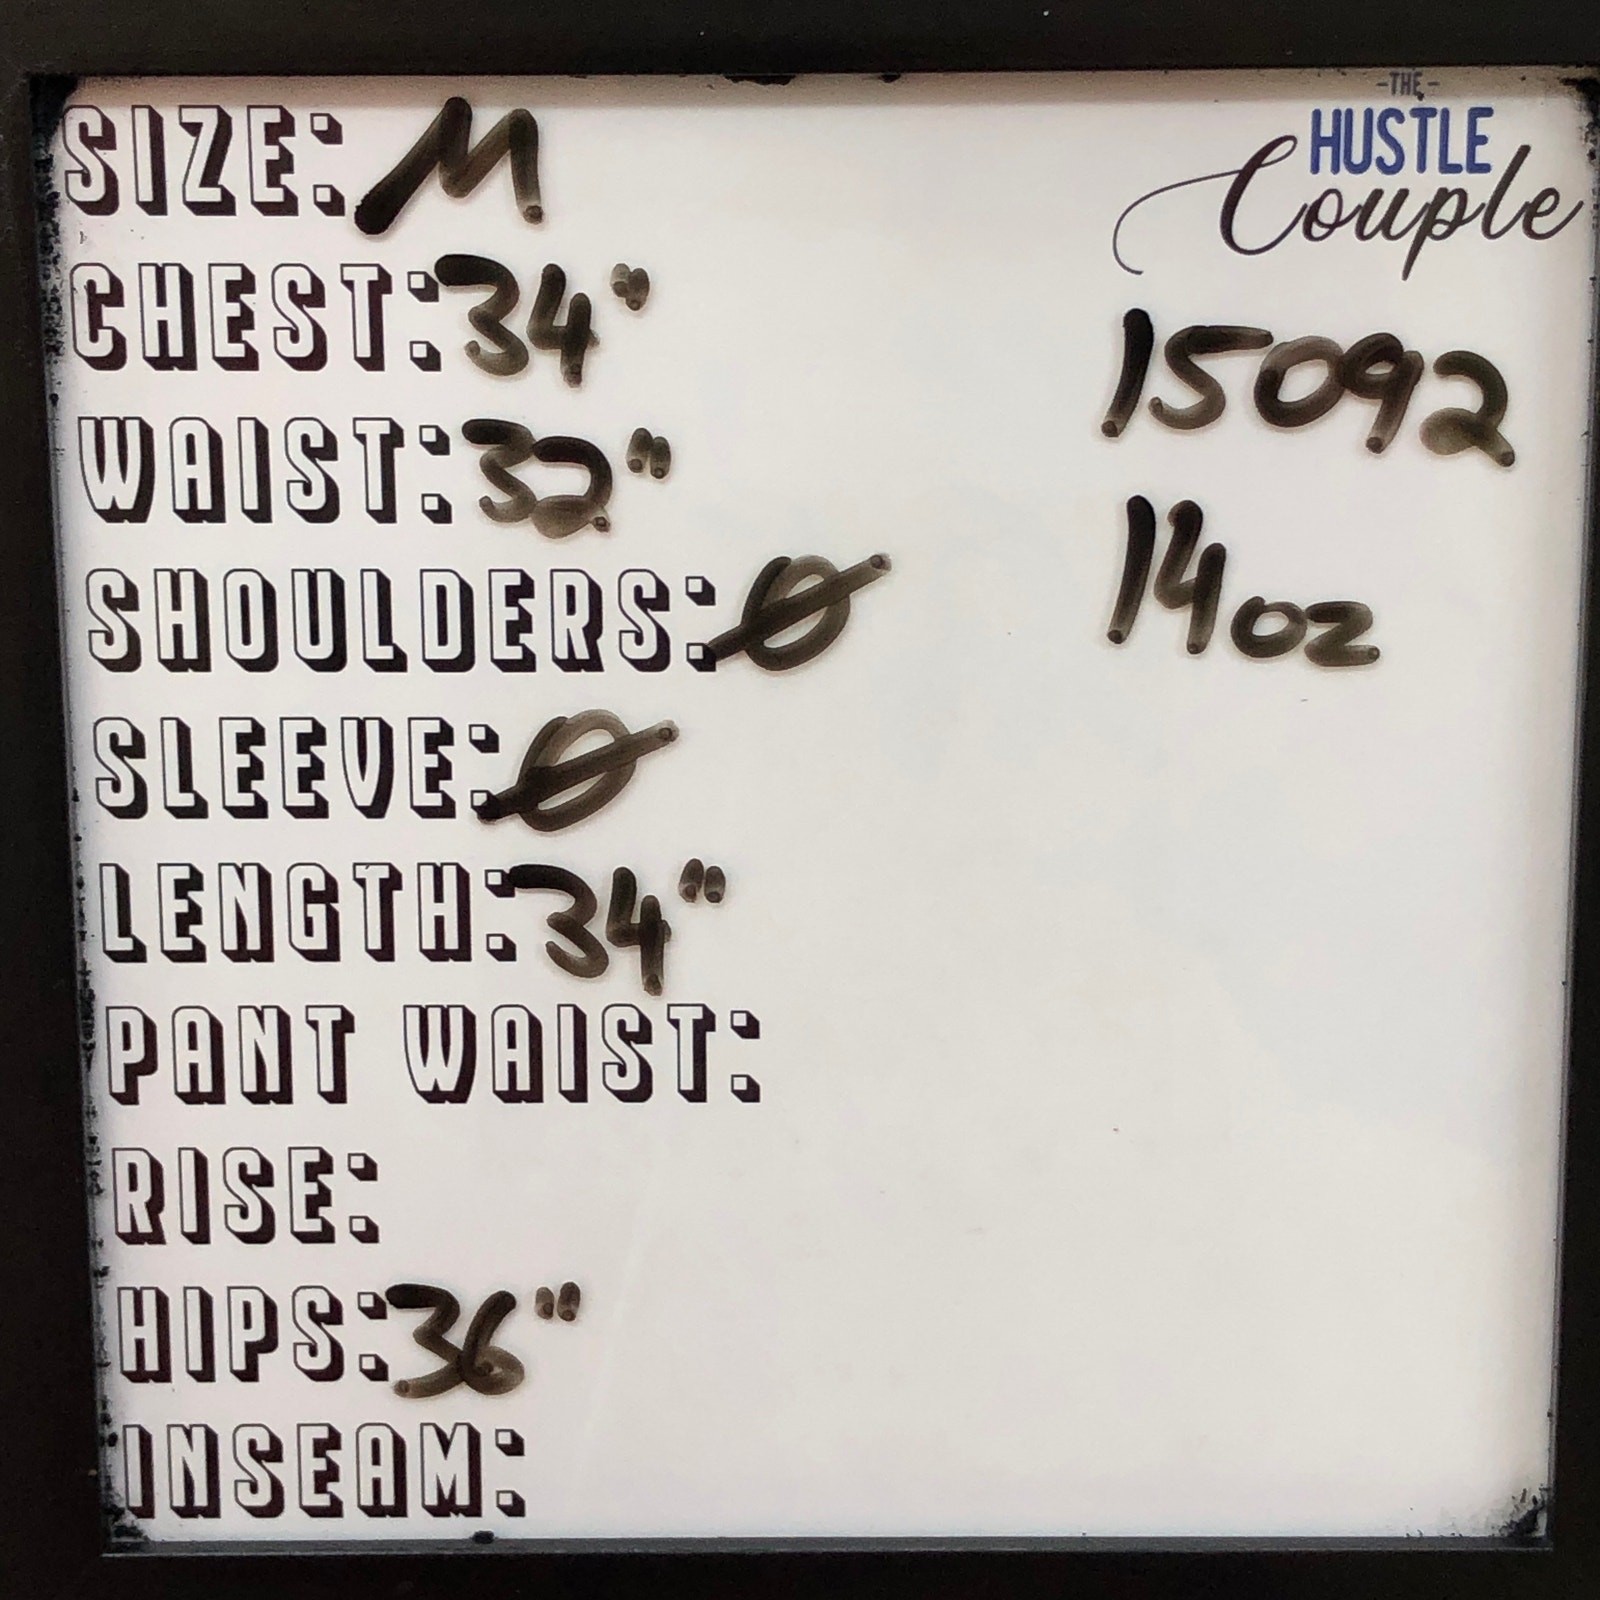 SIZE: M
-THE-
HUSTLE
Couple
CHEST: 34"
15092
WAIST: 32"
14oz
SHOULDERS: Ø
SLEEVE: Ø
LENGTH: 34"
PANT WAIST:
RISE:
HIPS: 36"
INSEAM: